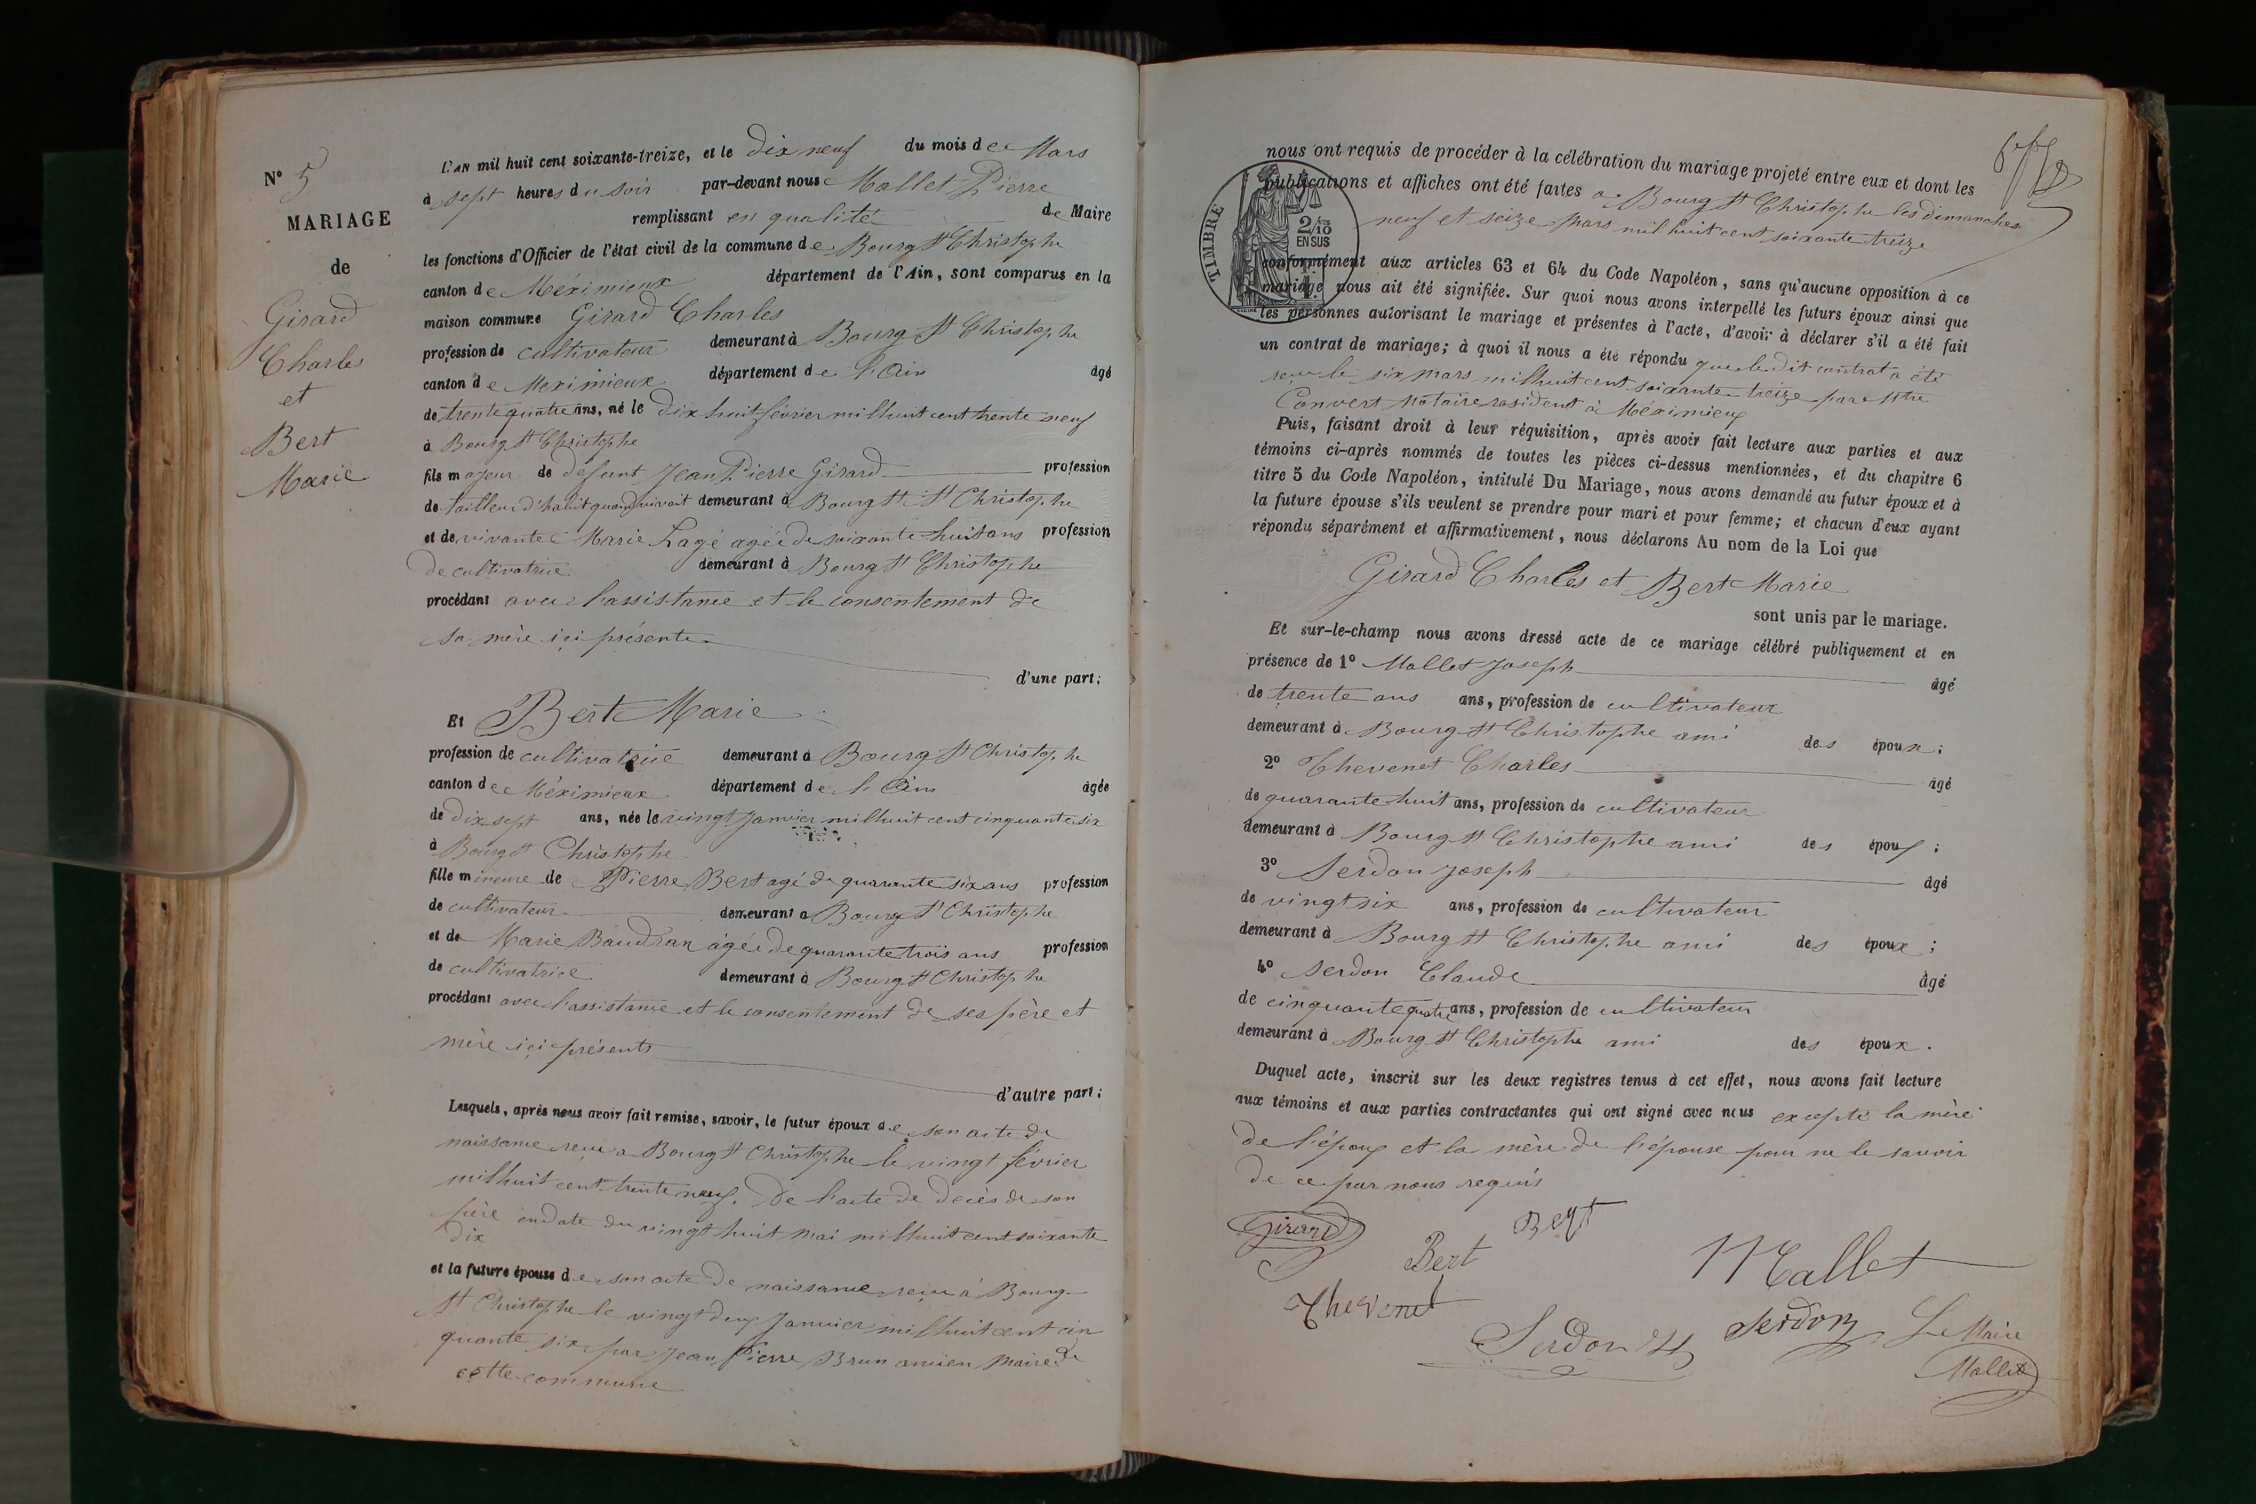 N° 5
MARIAGE
de
Girard
Charles
et
Bert
Marie
L'AN mil huit cent soixante-treize, et le dix neuf du mois de Mars
à sept heures du soir par-devant nous Mallet Pierre
remplissant en qualité de Maire
les fonctions d'Officier de l'état civil de la commune de Bourg St Christophe
canton de Méximieux département de l'Ain, sont comparus en la
maison commune Girard Charles
profession de cultivateur demeurant à Bourg St Christophe
canton de Meximieux département de l'Ain âgé
de trente quatre ans, né le dix huit février mil huit cent trente neuf
à Bourg St Christophe
fils majeur de défunt Jean Pierre Girard profession
de tailleur d'habit quand vivait demeurant à Bourg St St Christophe
et de vivante Marie Lagé agée de soixante huit ans profession
de cultivatrice demeurant à Bourg St Christophe
procédant avec l'assistance et le consentement de
sa mère içi présente
d'une part;
Et Bert Marie
profession de cultivatrice demeurant à Bourg St Christophe
canton de Méximieux département de l'Ain âgée
de dix sept ans, née le vingt Janvier mil huit cent cinquante six
à Bourg St Christophe
fille mineure de Pierre Bert agé de quarante six ans profession
de cultivateur demeurant à Bourg St Christophe
et de Marie Baudran âgée de quarante trois ans profession
de cultivatrice demeurant à Bourg St Christophe
procédant avec l'assistance et le consentement de ses père et
mère içi présents
d'autre part;
Lesquels, après nous avoir fait remise, savoir, le futur époux de son acte de
naissance reçu a Bourg St Christophe le vingt février
mil huit cent trente neuf. De l'acte de décès de son
père en date du vingt huit mai mil huit cent soixante
dix
et la future épouse de son acte de naissance reçu à Bourg
St Christophe le vingt deux Janvier mil huit cent cin
quante six par Jean Pierre Brun ancien Maire de
cette commune
nous ont requis de procéder à la célébration du mariage projeté entre eux et dont les
publications et affiches ont été faites a Bourg St Christophe les dimanches
neuf et seize Mars mil huit cent soixante treize
TIMBRE
2/10
EN SUS
conformément aux articles 63 et 64 du Code Napoléon, sans qu'aucune opposition à ce
mariage nous ait été signifiée. Sur quoi nous avons interpellé les futurs époux ainsi que
les personnes autorisant le mariage et présentes à l'acte, d'avoir à déclarer s'il a été fait
un contrat de mariage; à quoi il nous a été répondu que le dit contrat a été
reçu le six Mars mil huit cent soixante treize par Mtre
Convert Notaire résident à Méximieux
Puis, faisant droit à leur réquisition, après avoir fait lecture aux parties et aux
témoins ci-après nommés de toutes les pièces ci-dessus mentionnées, et du chapitre 6
titre 5 du Code Napoléon, intitulé Du Mariage, nous avons demandé au futur époux et à
la future épouse s'ils veulent se prendre pour mari et pour femme; et chacun d'eux ayant
répondu séparément et affirmativement, nous déclarons Au nom de la Loi que
Girard Charles et Bert Marie
sont unis par le mariage.
Et sur-le-champ nous avons dressé acte de ce mariage célébré publiquement et en
présence de 1° Mallet Joseph âgé
de trente ans ans, profession de cultivateur
demeurant à Bourg St Christophe ami des époux;
2° Thevenet Charles âgé
de quarante huit ans, profession de cultivateur
demeurant à Bourg St Christophe ami des époux;
3° Serdon Joseph âgé
de vingt six ans, profession de cultivateur
demeurant à Bourg St Christophe ami des époux;
4° Serdon Claude âgé
de cinquante quatre ans, profession de cultivateur
demeurant à Bourg St Christophe ami des époux.
Duquel acte, inscrit sur les deux registres tenus à cet effet, nous avons fait lecture
aux témoins et aux parties contractantes qui ont signé avec nous excepté la mère
de l'époux et la mère de l'épouse pour ne le savoir
de ce par nous requis
Girard
Bert
Bert
Mallet
Thevenet
Serdon
Serdon
Le Maire
Mallet